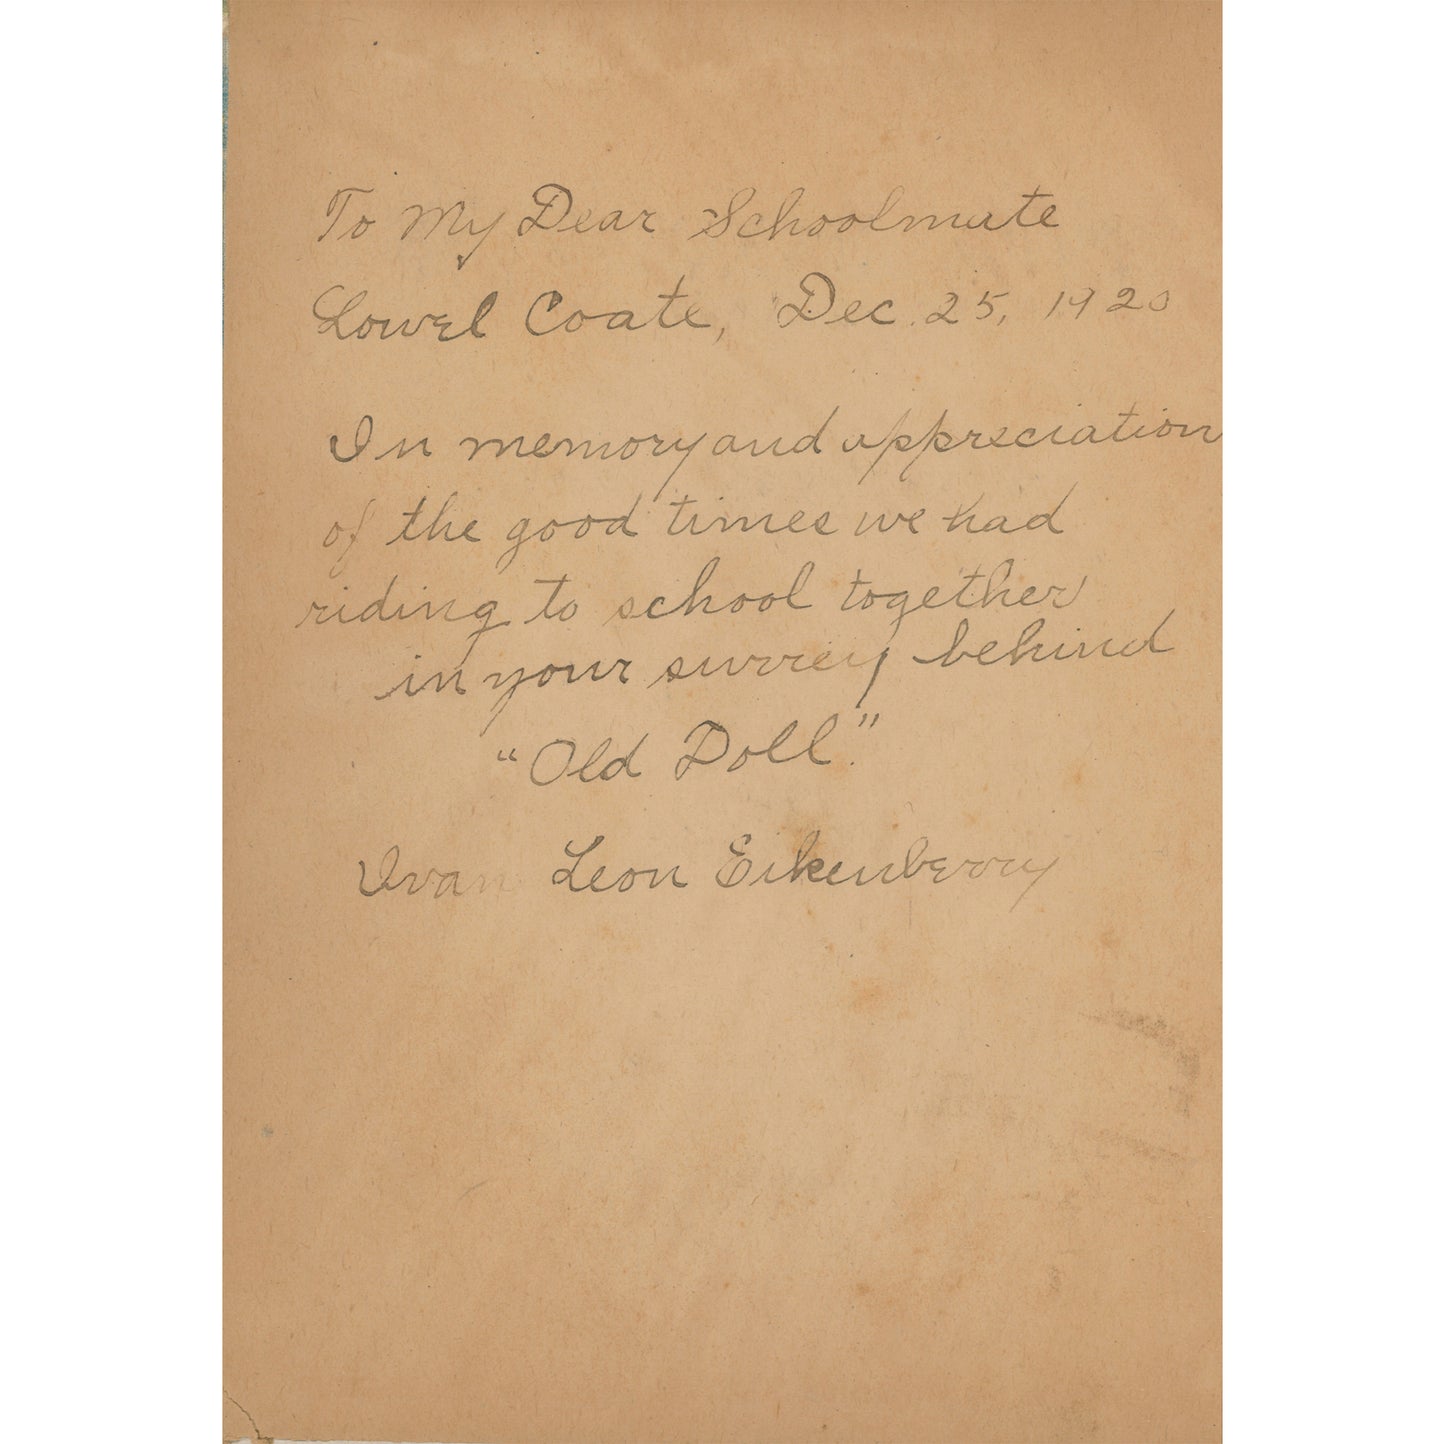 To My Dear Schoolmate
Lowel Coate, Dec. 25, 1920
In memory and appreciation
of the good times we had
riding to school together
in your surrey behind
"Old Doll."
Ivan Leon Eikenberry